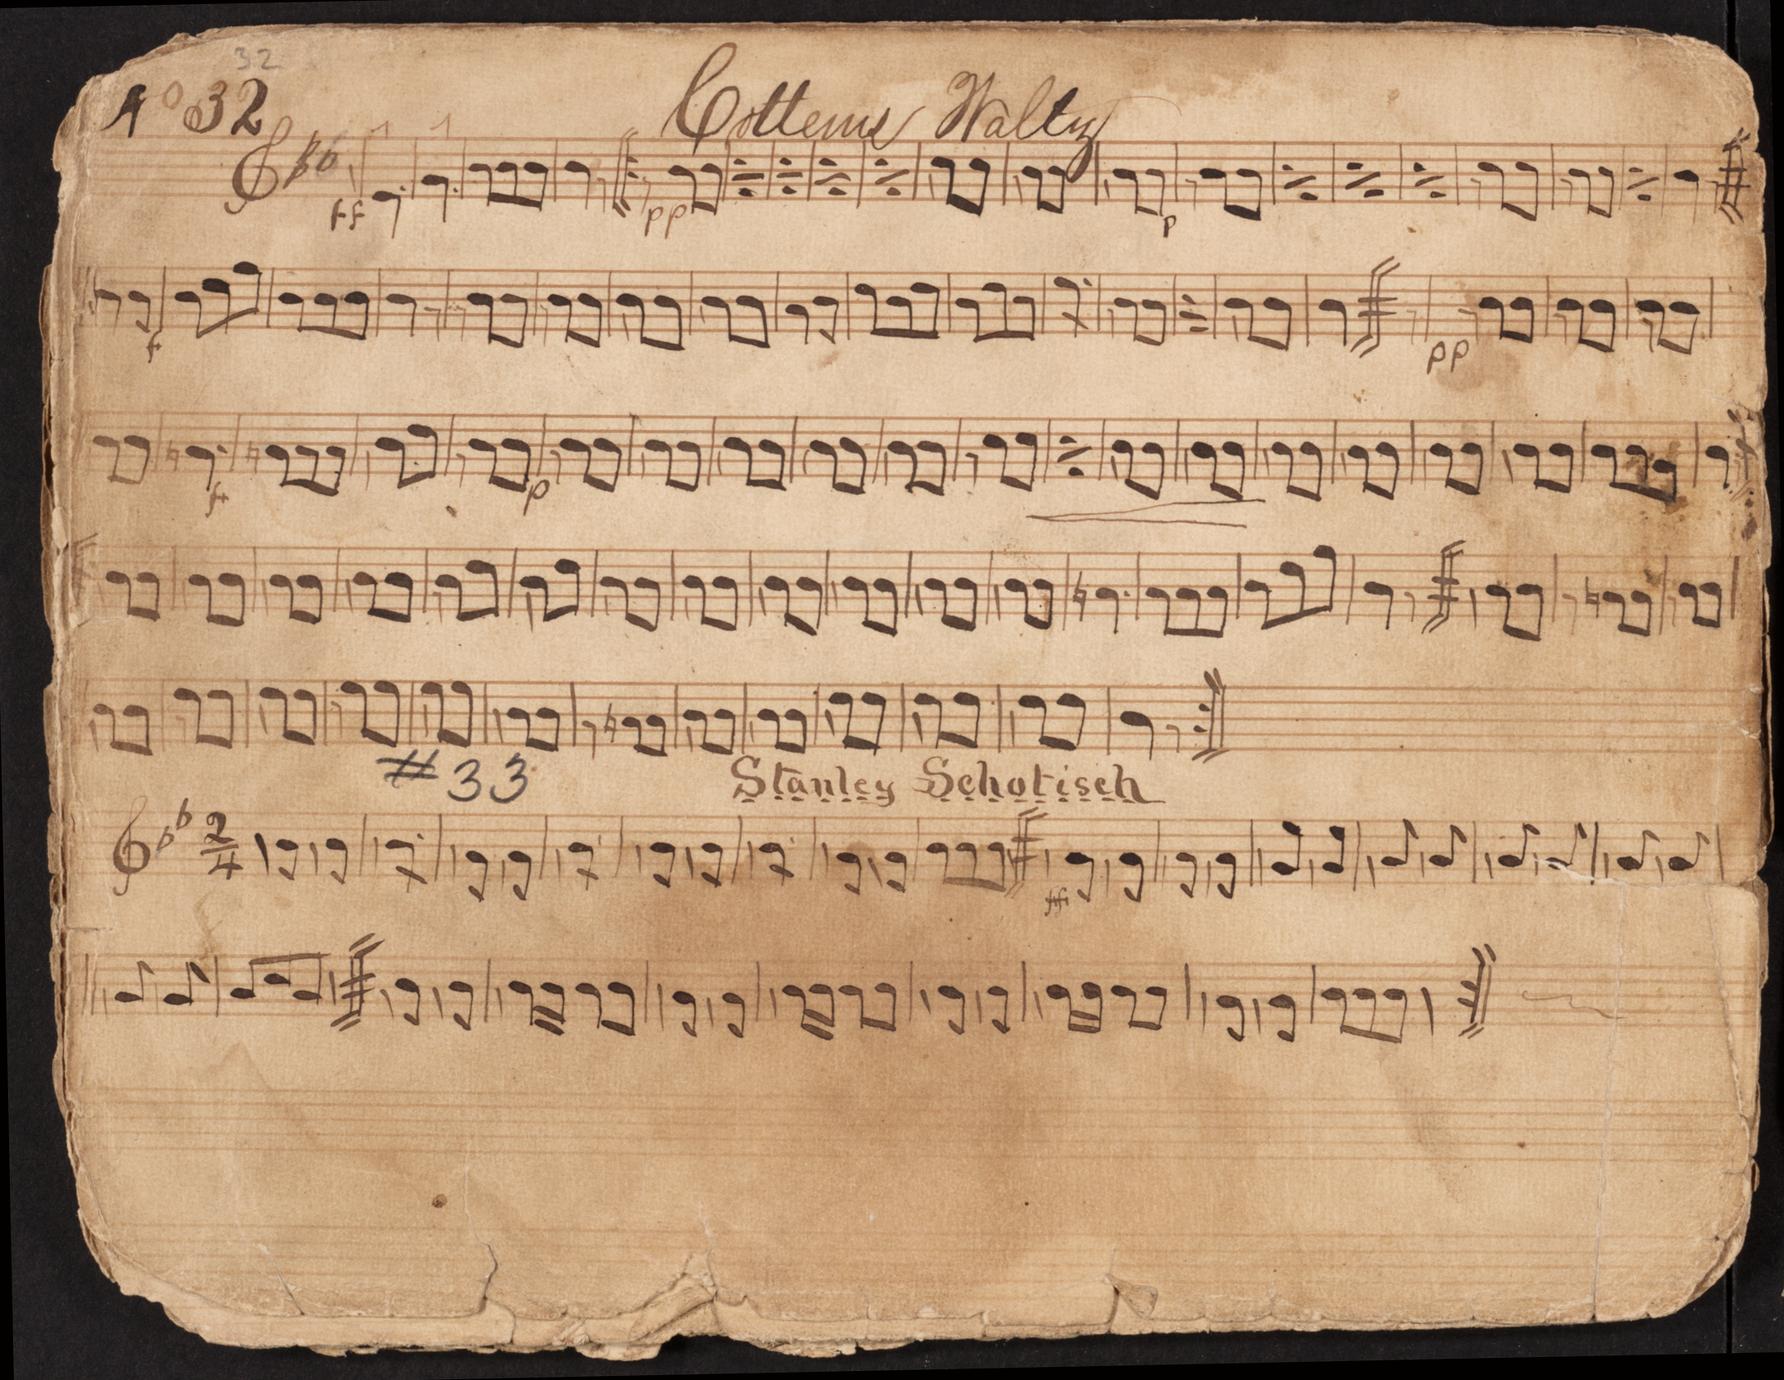 32
No 32 Cottems Waltz
ff pp p
f pp
f p
# 33 Stanley Schotisch
2/4
ff